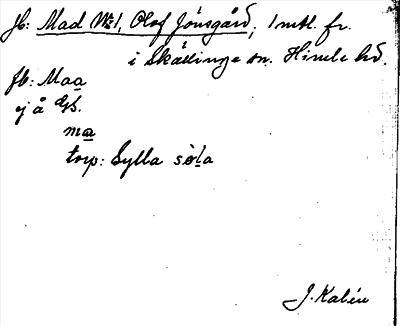 fb: Mad № 1, Olof Jönsgård, 1 mtl. fr.
i Skällinge sn. Himle hd.
fb: Maa
ej å Gs.
ma
torp: Sylla söla
J. Kalén